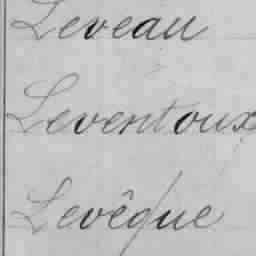 Leveau
Leventoux
Levêque